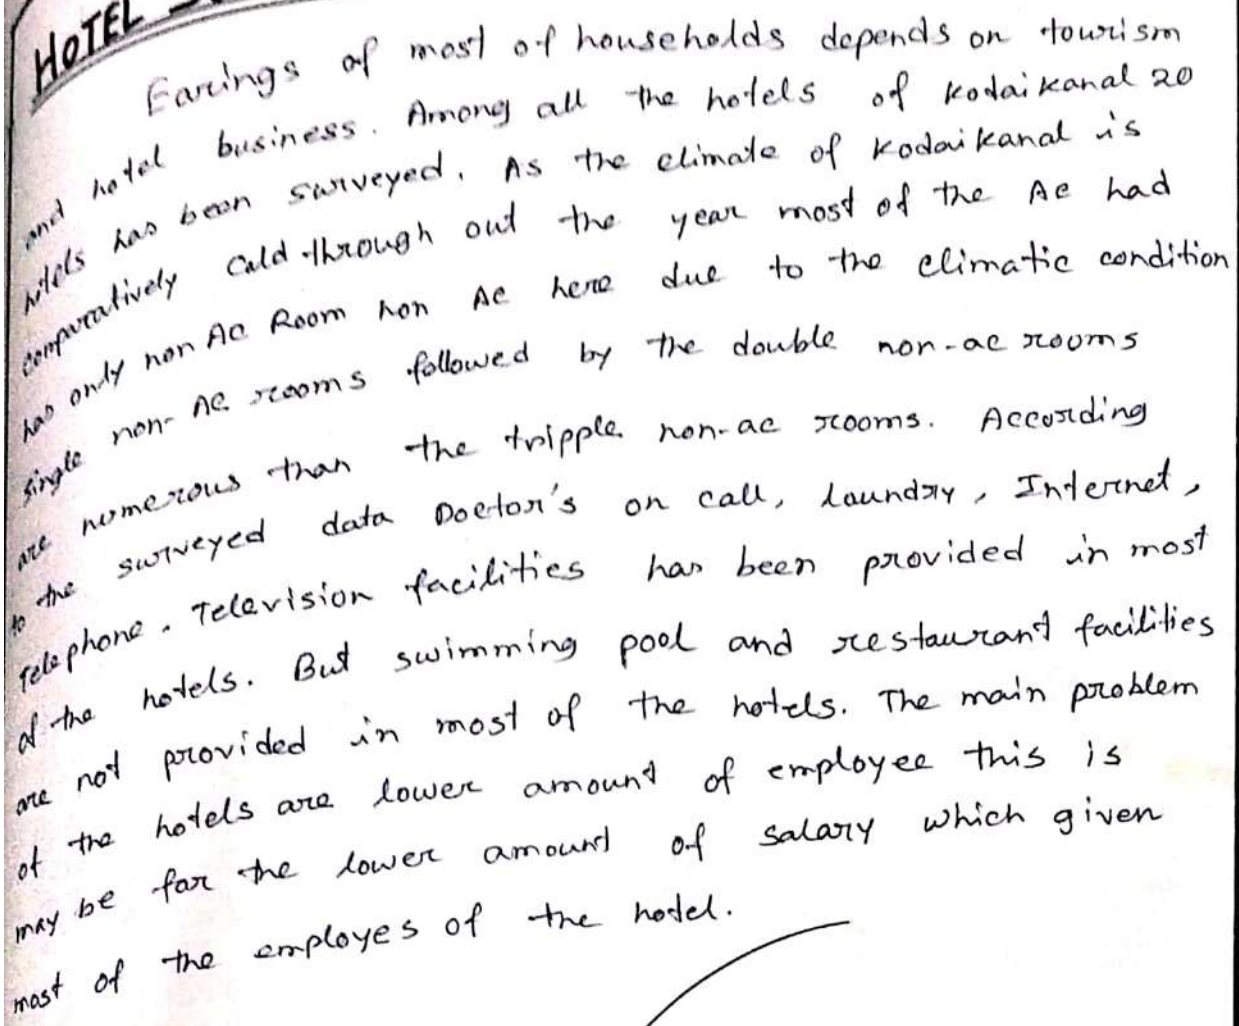 HOTEL
Earings of most of households depends on tourism
and hotel business. Among all the hotels of Kodaikanal 20
hotels has been surveyed. As the climate of Kodaikanal is
comparatively cald through out the year most of the Ac had
has only non Ac Room non Ac here due to the climatic condition
single non-Ac rooms followed by the double non-ac rooms
are numerous than the tripple non-ac rooms. According
to the surveyed data Doctor's on call, laundry, Internet,
Telephone. Television facilities has been provided in most
of the hotels. But swimming pool and restaurant facilities
are not provided in most of the hotels. The main problem
of the hotels are lower amount of employee this is
may be far the lower amount of salary which given
most of the employes of the hotel.